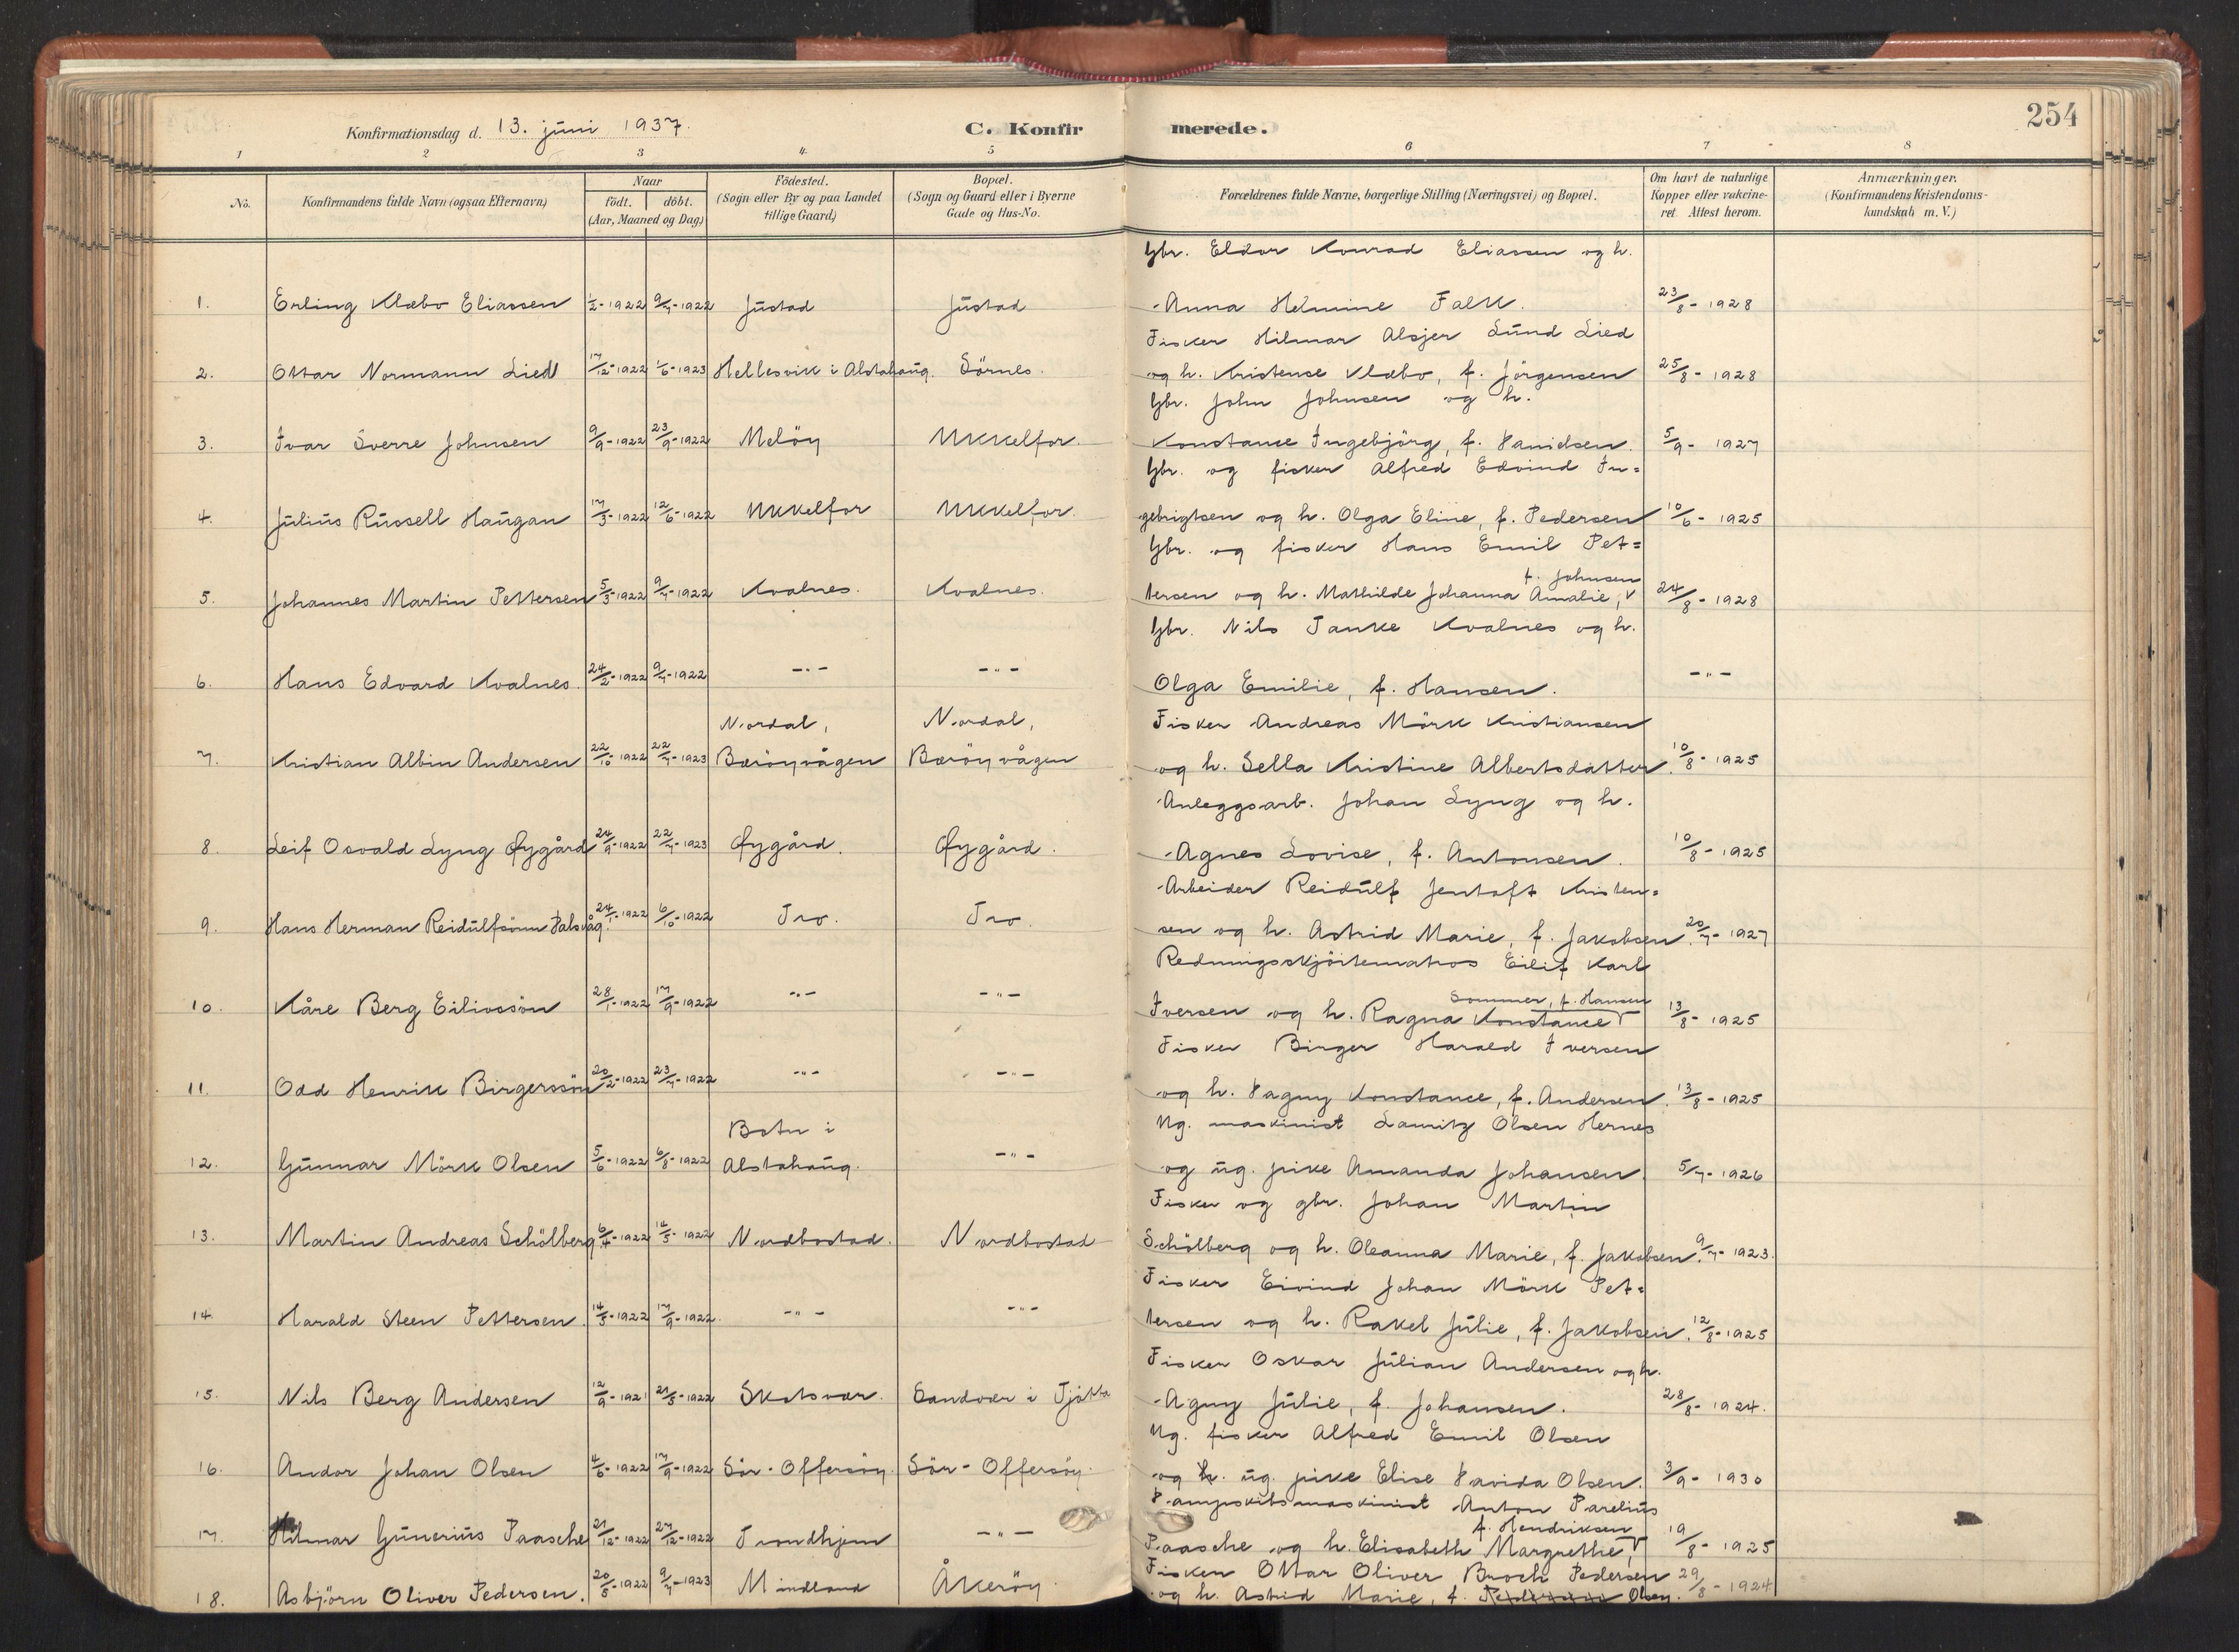 254
Konfirmationsdag d. 13. juni 1937.
C. Konfirmerede.
1 2 3 4. 5 6 7 8
No.
Konfirmandens fulde Navn (ogsaa Efternavn)
Naar
födt. döbt.
(Aar, Maaned og Dag)
Födested.
(Sogn eller By og paa Landet
tillige Gaard)
Bopæl.
(Sogn og Gaard eller i Byerne
Gade og Hus-No.
Forældrenes fulde Navne, borgerlige Stilling (Næringsvei) og Bopæl.
Om havt de naturlige
Kopper eller vakcine-
ret. Attest herom.
Anmærkninger.
(Konfirmandens Kristendoms-
kundskab m. V.)
Gbr. Eldor Konrad Eliassen og h.
1. Erling Klæbo Eliassen 1/2-1922 9/7-1922 Justad Justad Anna Helmine Falk. 23/8-1928
Fisker Hilmar Alsjer Lund Lied
2. Ottar Normann Lied 17/12-1922 1/6-1923 Hellesvik i Alstahaug. Sörnes. og h. Kristense Klæbo, f. Jörgensen 25/8-1928
Gbr. John Johnsen og h.
3. Ivar Sverre Johnsen 9/9-1922 23/9-1922 Melöy Ukkelfor. Konstance Ingebjörg, f. Danielsen. 5/9-1927
Gbr. og fisker Alfred Edvind In=
4. Julius Russell Haugan 17/3-1922 12/6-1922 Ukkelfor Ukkelfor. gebrigtsen og h. Olga Eline, f. Pedersen 10/6-1925
Gbr. og fisker Hans Emil Pet=
f. Johnsen
5. Johannes Martin Pettersen 5/3-1922 9/7-1922 Kvalnes. Kvalnes. tersen og h. Mathilde Johanna Amalie, v 24/8-1928
Gbr. Nils Tanke Kvalnes og h.
6. Hans Edvard Kvalnes. 24/2-1922 9/7-1922 -"- -"- Olga Emilie, f. Hansen. -"-
Nordal, Nordal, Fisker Andreas Mörk Kristiansen
7. Kristian Albin Andersen 22/10-1922 22/7-1923 Bæröyvågen Bæröyvågen og h. Sella Kristine Albertsdatter. 10/8-1925
Anleggsarb. Johan Lyng og h.
8. Leif Osvald Lyng Øygård 24/9-1922 22/7-1923 Øygård. Øygård. Agnes Lovise, f. Antonsen. 10/8-1925
Arbeider Reidulf Jentoft Kristen=
9. Hans Herman Reidulfsönn Dalsvåg. 24/1-1922 6/10-1922 Tro. Tro. sen og h. Astrid Marie, f. Jakobsen. 20/7-1927
Redningsskjöitematros Eilif Karl
Sommer, f. Hansen
10. Kåre Berg Eilivssön 28/1-1922 17/9-1922 -"- -"- Iversen og h. Ragna Konstance v 13/8-1925
Fisker Birger Harald Iversen
11. Odd Henrik Birgerssön 20/2-1922 23/7-1922 -"- -"- og h. Dagny Konstance, f. Andersen. 13/8-1925
Botn i Ug. maskinist Lauritz Olsen Hernes
12. Gunnar Mörk Olsen 5/6-1922 6/8-1922 Alstahaug. -"- og ug. pike Amanda Johansen. 5/7-1926
Fisker og gbr. Johan Martin
13. Martin Andreas Schölberg 6/4-1922 14/5-1922 Nordbostad. Nordbostad Schölberg og h. Oleanna Marie, f. Jakobsen. 9/7-1923.
Fisker Eivind Johan Mörk Pet=
14. Harald Steen Pettersen. 14/5-1922 17/9-1922. -"- -"- tersen og h. Rakel Julie, f. Jakobsen. 12/8-1925
Fisker Oskar Julian Andersen og h.
15. Nils Berg Andersen 12/9-1921 21/5-1922 Skotsvær. Sandvær i Tjötta Agny Julie, f. Johansen. 28/8-1924.
Ug. fisker Alfred Emil Olsen
16. Andor Johan Olsen 4/6-1922 17/9-1922 Sör-Offersöy. Sör-Offersöy. og h. ug. pike Elise Davida Olsen. 3/9-1930
Dampskibsmaskinist Anton Parelius
f. Hendriksen
17. Hilmar Gunerius Paasche 21/12-1922 27/12-1922 Trondhjem -"- Paasche og h. Elisabeth Margrethe, v 19/8-1925
Fisker Ottar Oliver Broch Pedersen
18. Asbjörn Oliver Pedersen. 20/5-1922 9/7-1923 Mindland Åkeröy. og h. Astrid Marie, f. Pedersen Olsen. 29/8-1924